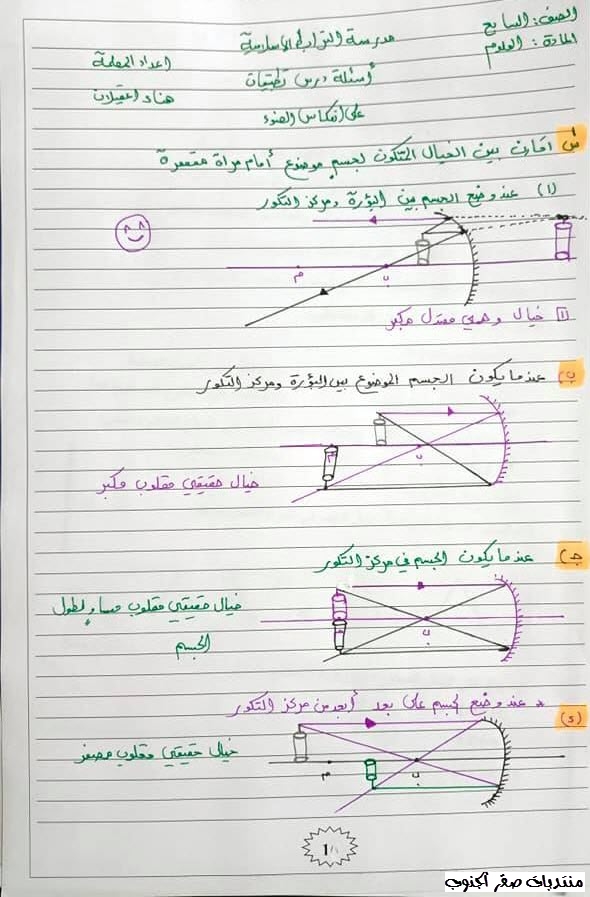 الصف: السابع
المادة: العلوم
مدرسة الترابط الاسلامية
أسئلة درس تطبيقات
على انعكاس الضوء
اعداد المعلمة
هناء اعقيلان
س أقارن بين الخيال المتكون لجسم موضوع أمام مرآة مقعرة
(١) عند وضع الجسم بين البؤرة ومركز التكور
م
ب
١ خيال وهمي معتدل مكبر
ب) عندما يكون الجسم الموضوع بين البؤرة ومركز التكور
م
ب
خيال حقيقي مقلوب مكبر
ج) عندما يكون الجسم في مركز التكور
ب
خيال حقيقي مقلوب مساوٍ لطول
الجسم
(د) عند وضع لجسم على بعد أبعد من مركز التكور
خيال حقيقي مقلوب مصغر
م
ب
1
منتديات صقر الجنوب